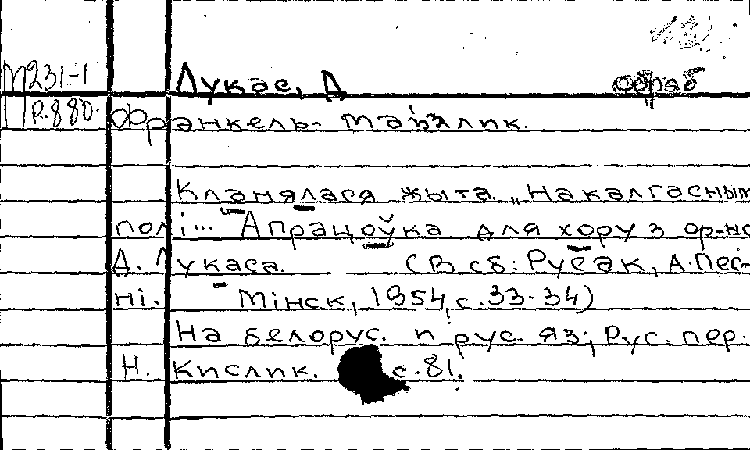 М231-1 Лукас, Д обраб
П Р.880. Франкель-
Кланялася жыта. "На калгасным
полі... Апрацоўка для хору з орк-
Д. Лукаса. (В сб: Русак, А. Пес-
ні. Мінск, 1954, с. 33-34)
На белорус. и рус. яз; Рус. пер.
Н. Кислик. с. 81.